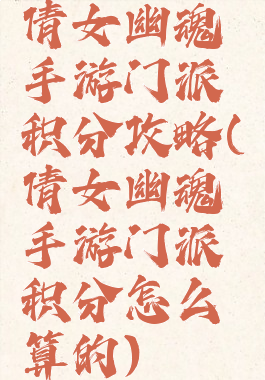 倩女幽魂
手游门派
积分攻略(
倩女幽魂
手游门派
积分怎么
算的)